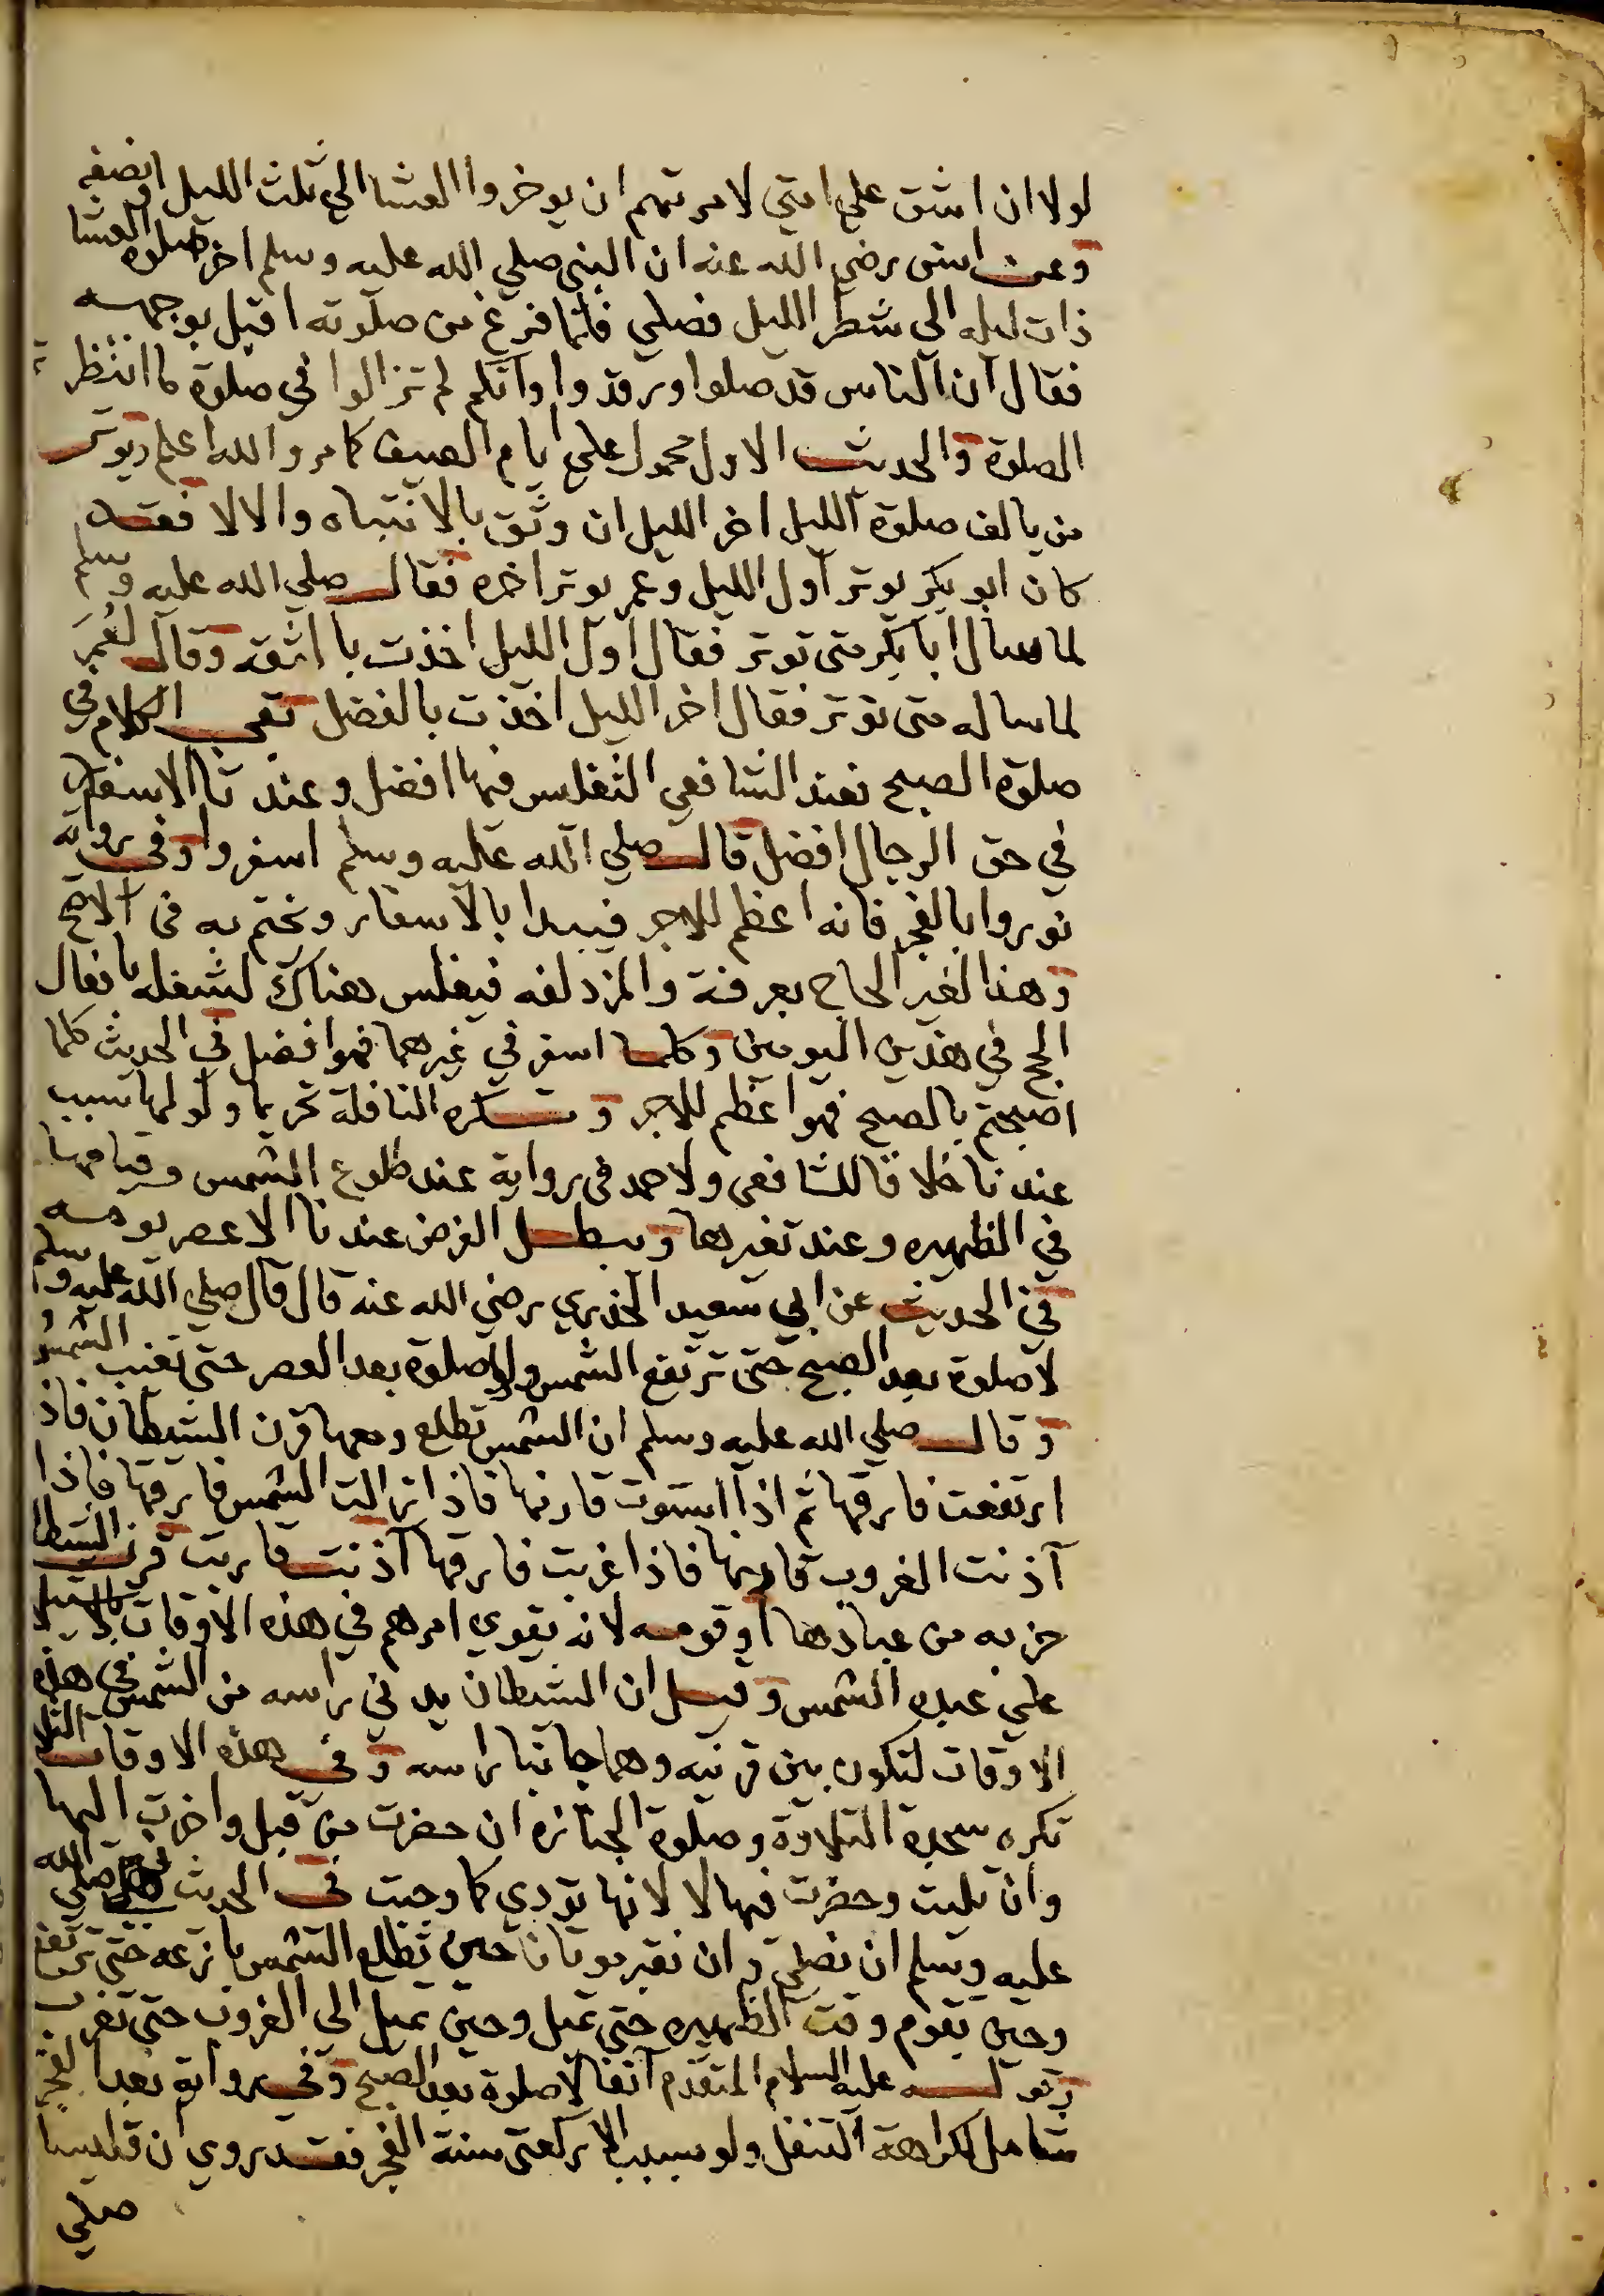 لولا ان اشق على امتي لامرتهم ان يوخروا العشا الي ثلث الليل او نصفه
وعن انس رضي الله عنه ان النبي صلي الله عليه وسلم اخر صلوة العشا
ذات ليله الى شطر الليل فصلي فلما فرغ من صلوته اقبل بوجهه
فقال ان الناس قد صلوا ورقدوا وانكم لم تزالوا في صلوة ما انتظرتم
الصلوة والحديث الاول محمول علي ايام الصيف كما مر والله اعلم ويوتر
من يالف صلوة الليل اخر الليل ان وثق بالانتباه والا لا فقد
كان ابو بكر يوتر اول الليل وعمر يوتر اخره فقال صلي الله عليه وسلم
لما سال ابا بكر متى توتر فقال اول الليل اخذت با الثقه وقال لعمر
لما ساله متى توتر فقال اخر الليل اخذت بالفضل بقي الكلام في
صلوة الصبح فعند الشافعي التغليس فيها افضل وعندنا الاسفار
في حق الرجال افضل قال صلي الله عليه وسلم اسفروا وفي رواية
نوروا بالفجر فانه اعظم للاجر فيبدا بالاسفار ويختم به في الاصح
وهذا لغير الحاج بعرفة والمزدلفه فيغلس هناك لشغله بافعال
الحج في هذين اليومين وكلما اسفر في غيرهما فهو افضل في الحديث كلما
اصبحتم بالصبح فهو اعظم للاجر وتكره النافلة تحريما ولو لها سبب
عندنا خلافا للشافعي ولاحمد في رواية عند طلوع الشمس وقيامها
في الظهيره وعند تغيرها ويبطل الفرض عندنا الا عصر يومه
في الحديث عن ابي سعيد الخدري رضي الله عنه قال قال صلي الله عليه وسلم
لا صلوة بعد الصبح حتى ترتفع الشمس ولا صلوة بعد العصر حتى تغيب الشمس
وقال صلي الله عليه وسلم ان الشمس تطلع ومعها قرن الشيطان فاذا
ارتفعت فارقها ثم اذا استوت قارنها فاذا زالت الشمس فارقها فاذا
آذنت الغروب قارنها فاذا غربت فارقها آذنت قاربت قرن الشيطان
حزبه من عبادها او قومه لانه يقوي امرهم في هذه الاوقات
علي عبده الشمس وقيل ان الشيطان يدني راسه من الشمس في هذه
الاوقات لتكون بين قرنيه وهما جانبا راسه وفي هذه الاوقات الثلاثة
تكره سجدة التلاوة وصلوة الجنازه ان حضرت من قبل واخرت اليها
وان تليت وحضرت فيها لا لانها تودي كما وجبت في الحديث نهى صلي الله
عليه وسلم ان نصلي وان نقبر موتانا حين تطلع الشمس بازغه حتى ترتفع
وحين يقوم وقت الظهيره حتى تميل وحين تميل الى الغروب حتى تغرب
وقوله عليه السلام المتقدم آنفا لا صلوة بعد الصبح وفي رواية بعد الفجر
شامل لكراهة التنفل ولو بسبب الا ركعتي سنة الفجر فقد روي ان قليسا
صلي